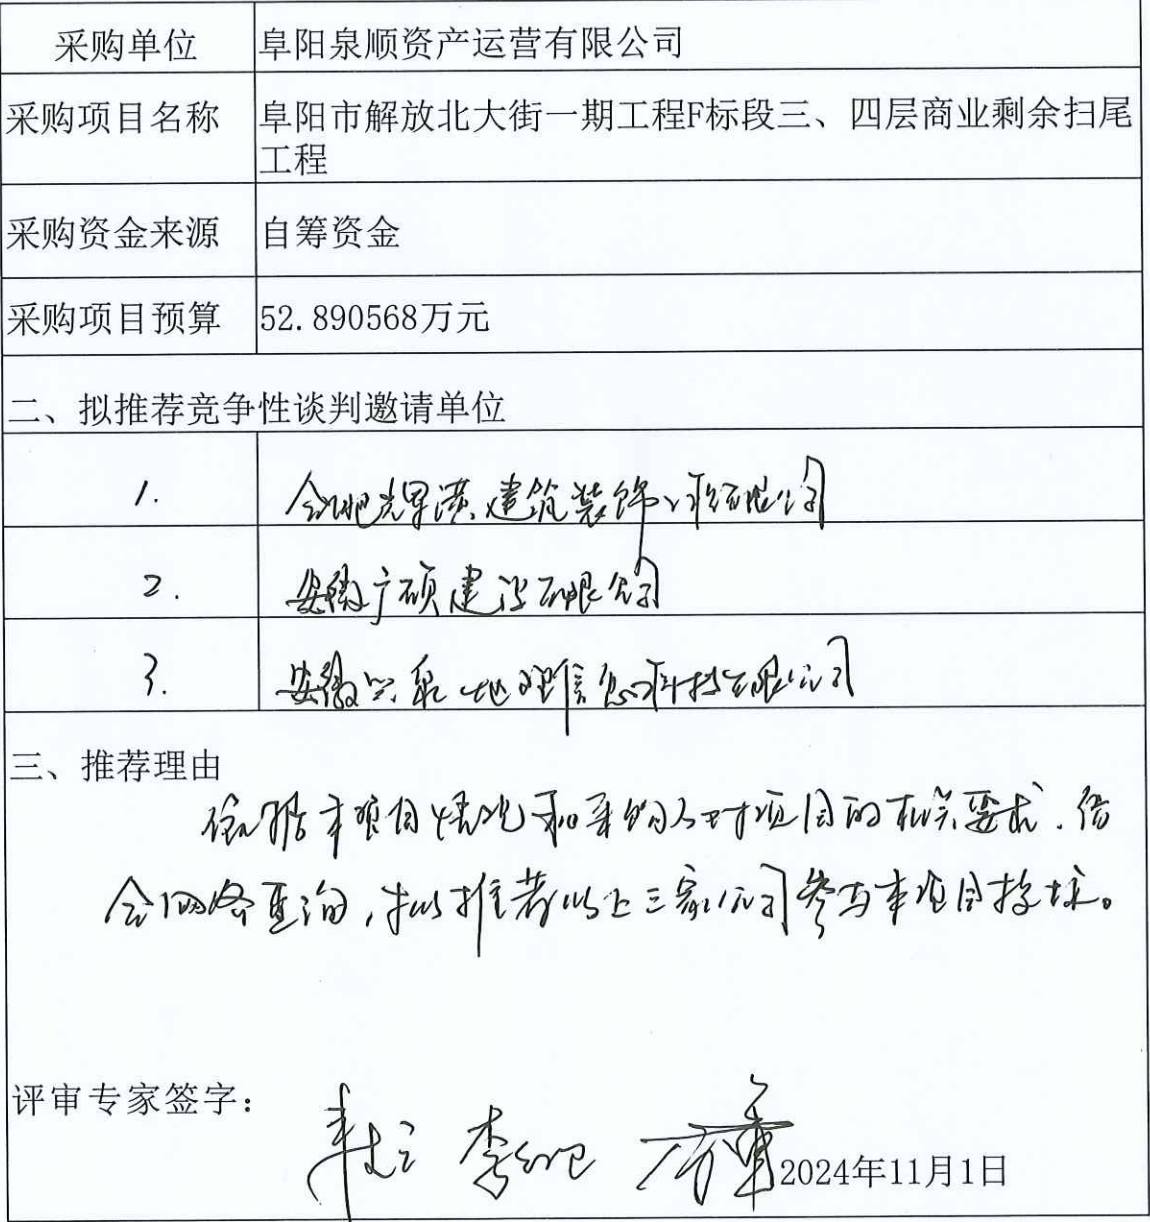 采购单位 阜阳泉顺资产运营有限公司
采购项目名称 阜阳市解放北大街一期工程F标段三、四层商业剩余扫尾
工程
采购资金来源 自筹资金
采购项目预算 52.890568万元
二、拟推荐竞争性谈判邀请单位
1. 合肥 建筑装饰 有限公司
2. 安徽广硕建设有限公司
3. 安徽兴泉地理信息科技有限公司
三、推荐理由
依据本项目情况和采购人对项目的相关要求,结
合网络查询,拟推荐以上三家公司参与本项目 。
评审专家签字:
2024年11月1日